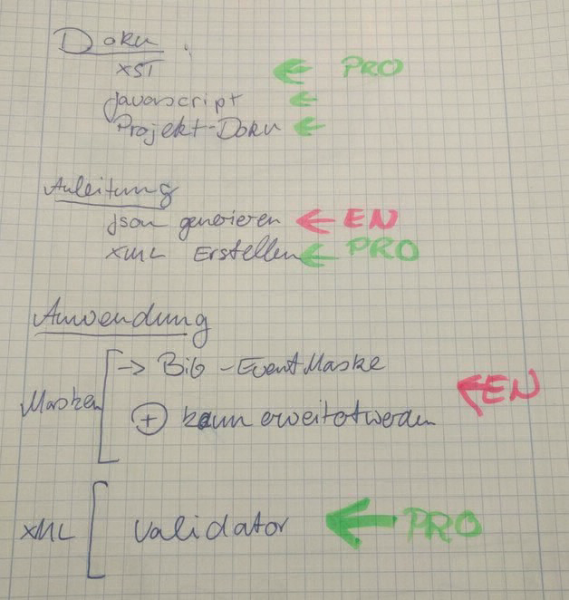 Doku:
XST ← PRO
Javascript ←
Projekt-Doku ←
Anleitung
json generieren ← EN
XML Erstellen ← PRO
Anwendung
Masken [ -> Bib - EventMaske
⊕ kann erweitetwerden ← EN
XML [ Validator ← PRO